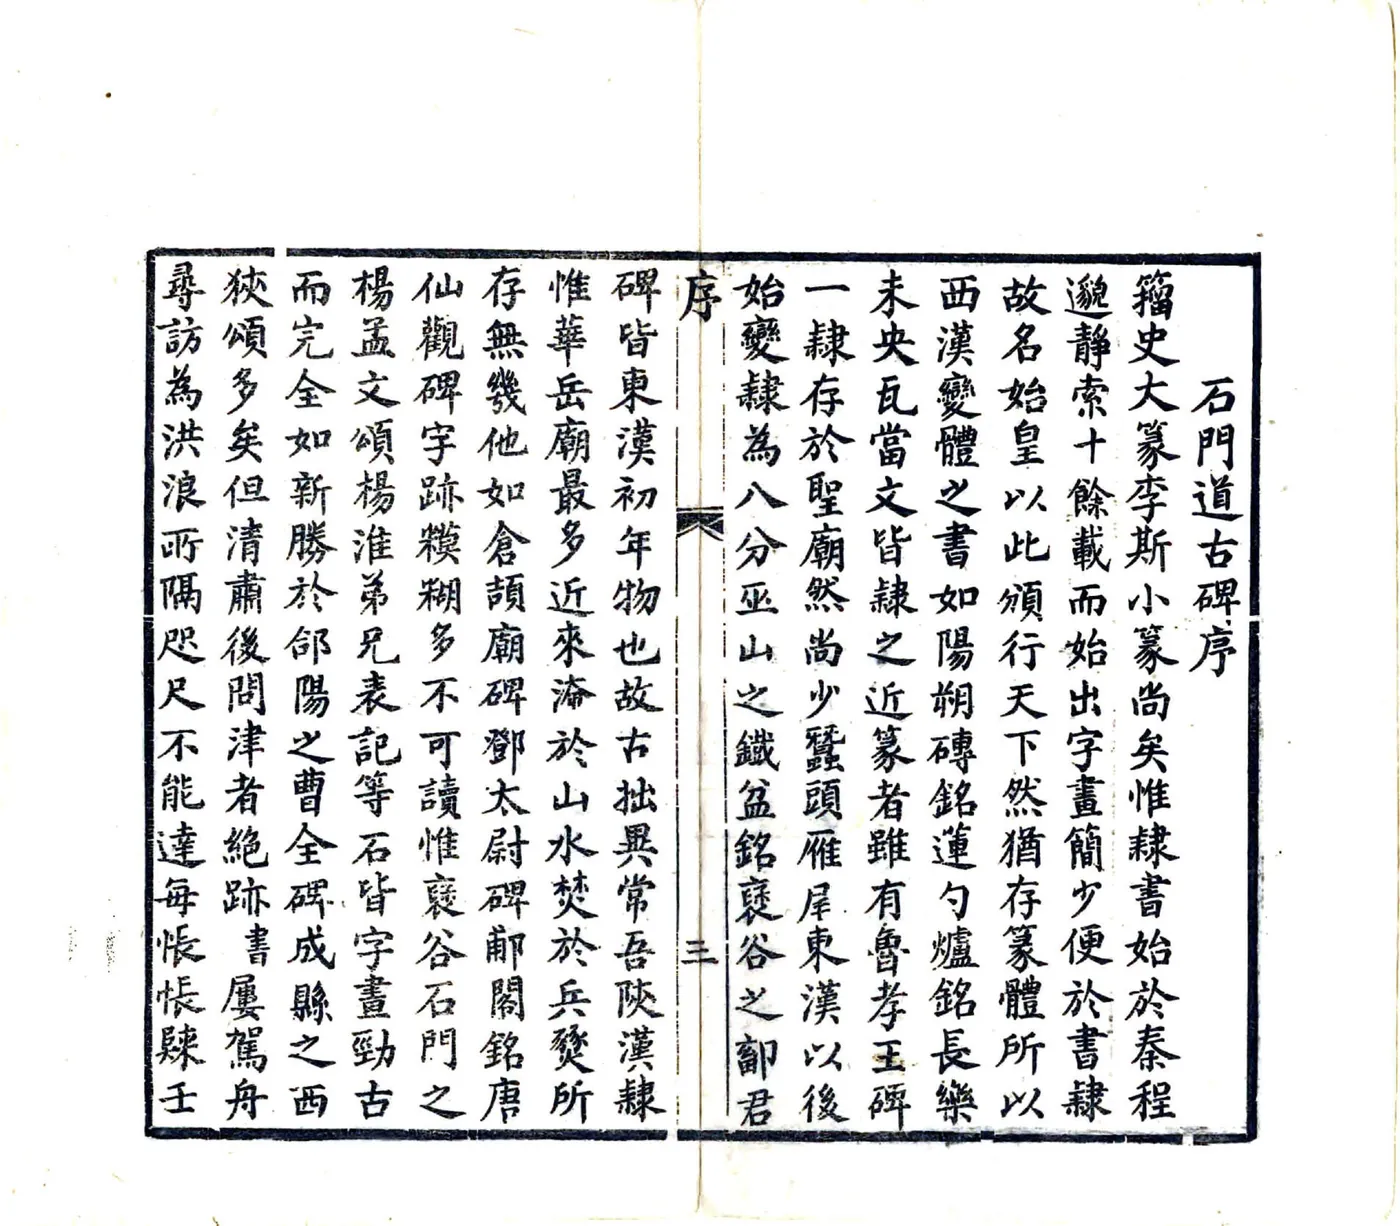 石門道古碑序
籀史大篆李斯小篆尚矣惟隸書始於秦程
邈靜索十餘載而始出字畫簡少便於書隸
故名始皇以此頒行天下然猶存篆體所以
西漢變體之書如陽朔磚銘蓮勺爐銘長樂
未央瓦當文皆隸之近篆者雖有魯孝王碑
一隸存於聖廟然尚少蠶頭雁尾東漢以後
始變隸為八分巫山之鐵盆銘褒谷之鄐君
序
三
碑皆東漢初年物也故古拙異常吾陝漢隸
惟華岳廟最多近來淹於山水焚於兵燹所
存無幾他如倉頡廟碑鄧太尉碑郙閣銘唐
仙觀碑字跡糢糊多不可讀惟褒谷石門之
楊孟文頌楊淮弟兄表記等石皆字畫勁古
而完全如新勝於郃陽之曹全碑成縣之西
狹頌多矣但清肅後問津者絕跡 書屢駕舟
尋訪為洪浪所隔咫尺不能達每悵悵歸壬